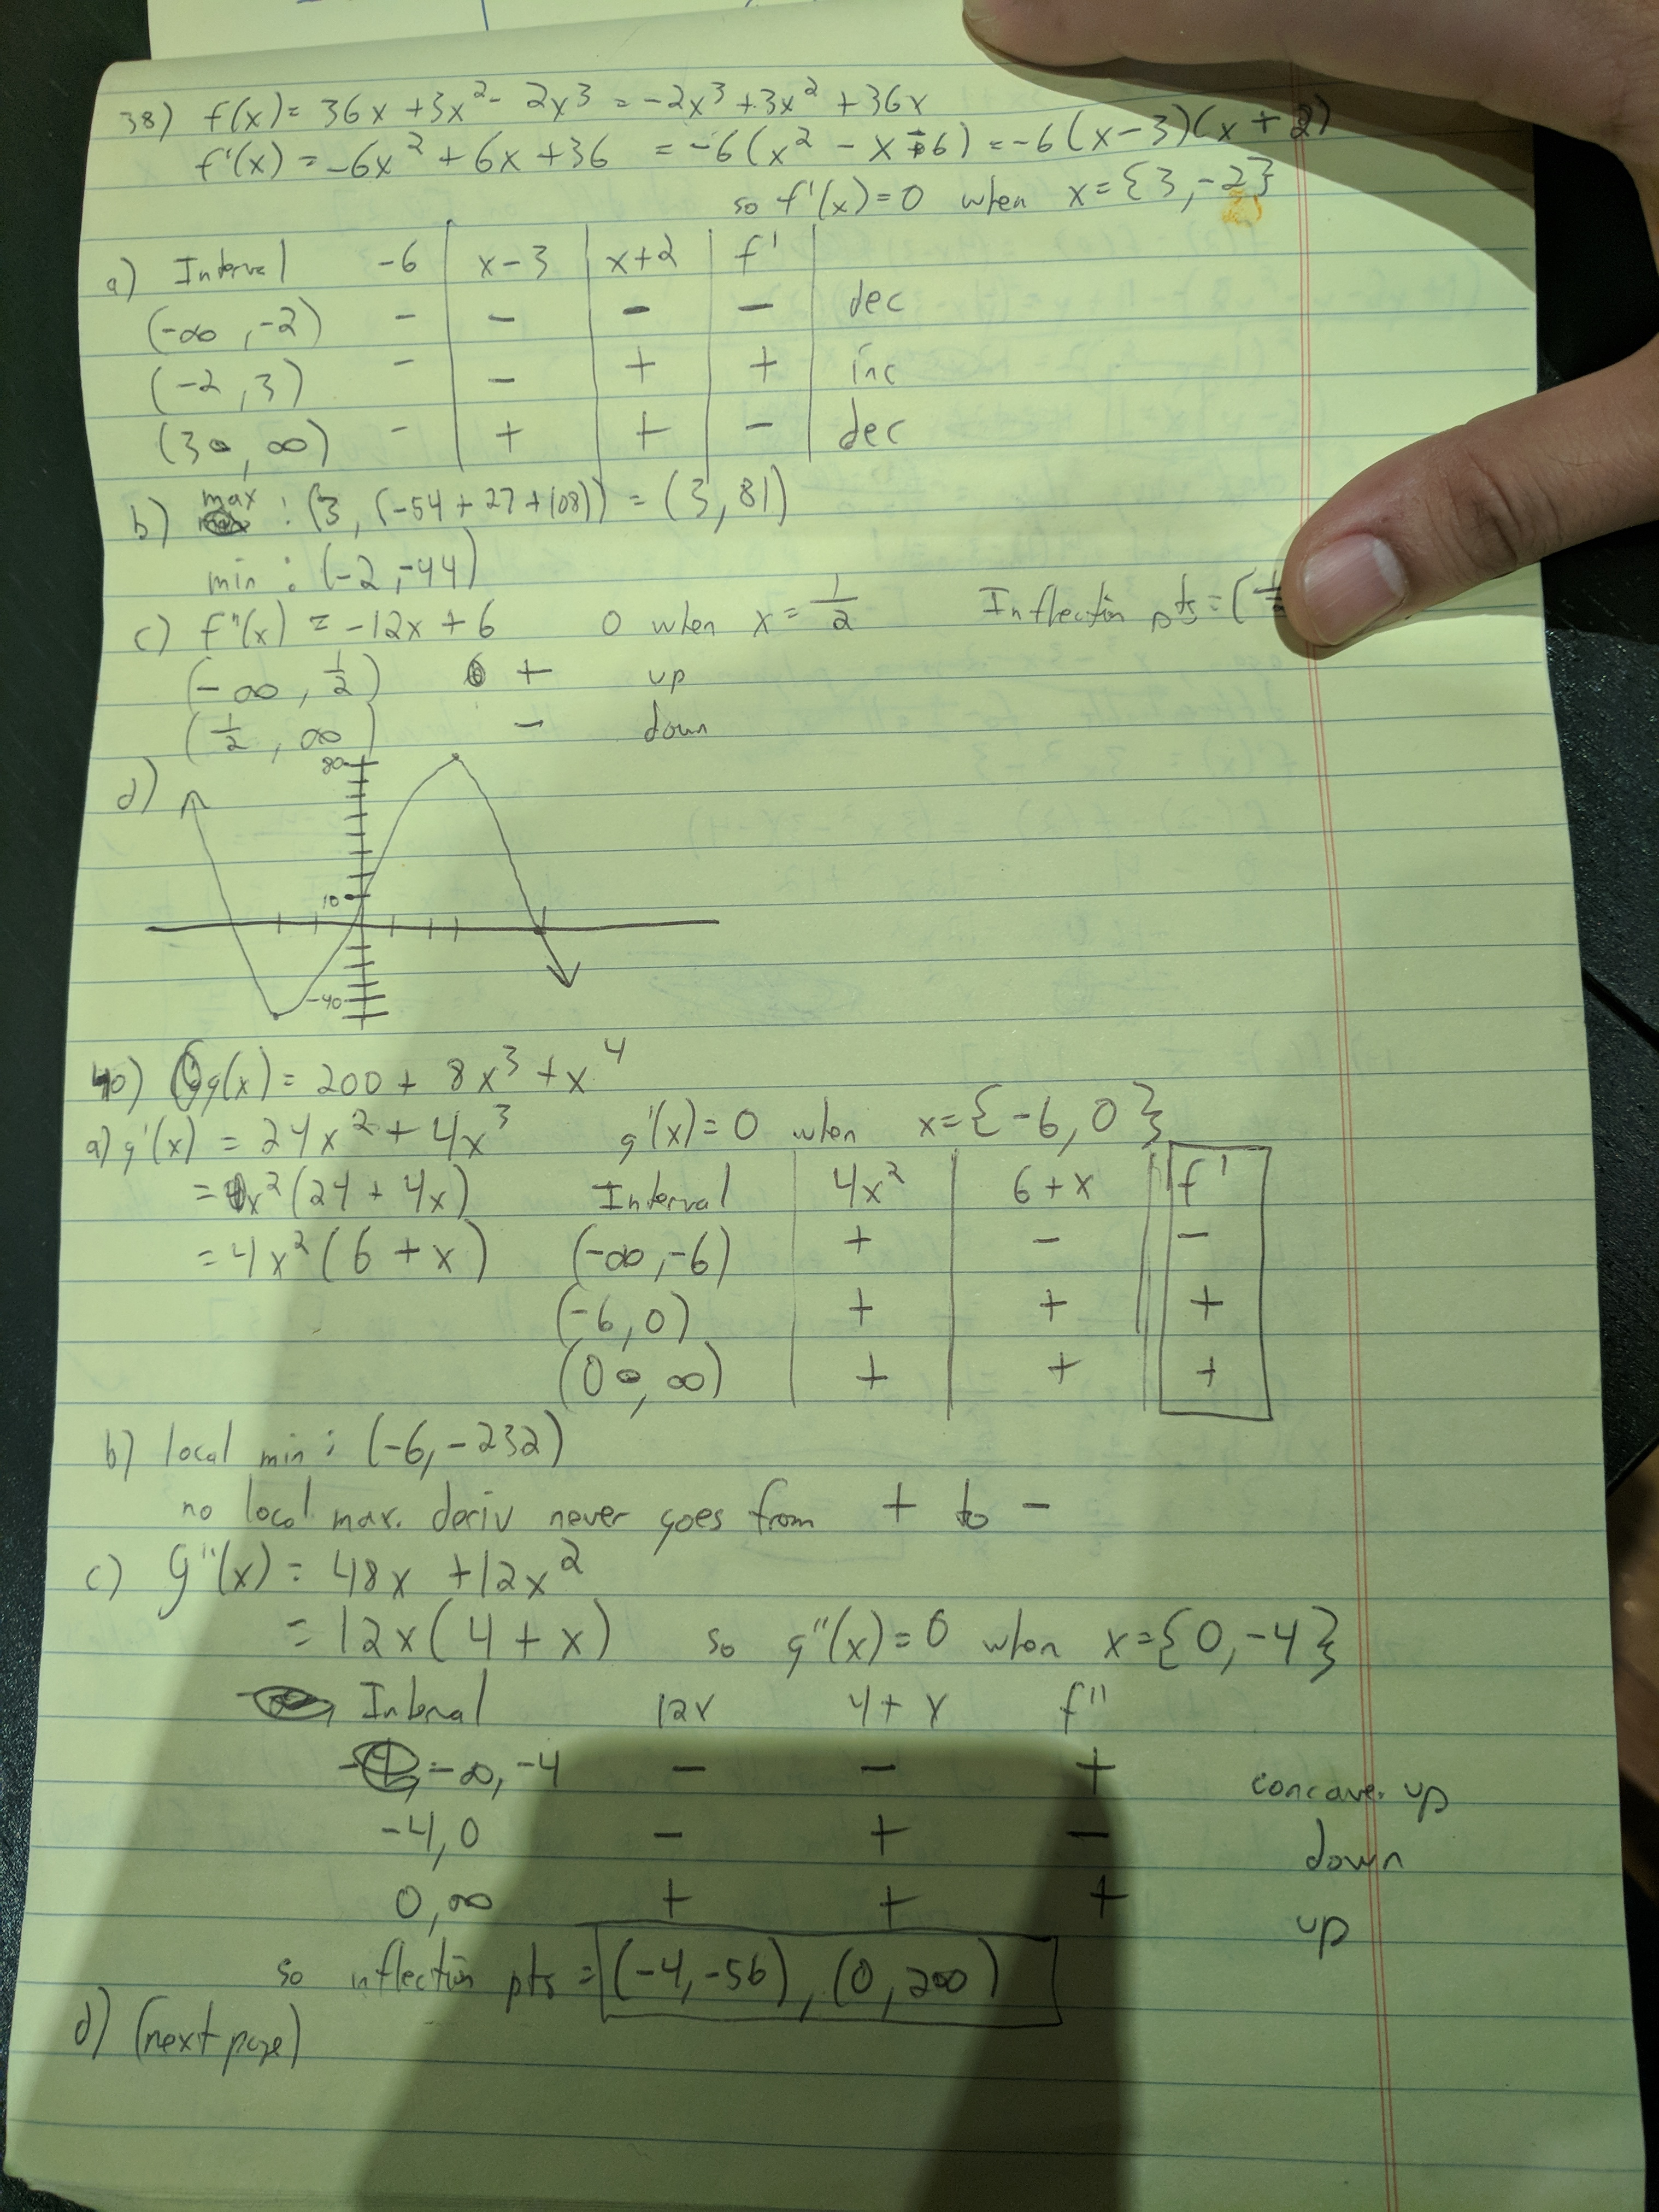 38) f(x) = 36x + 3x² - 2x³ = -2x³ + 3x² + 36x
f'(x) = -6x² + 6x + 36 = -6(x² - x - 6) = -6(x-3)(x+2)
so f'(x) = 0 when x = {3, -2}
a) Interval -6 x-3 x+2 f'
(-∞, -2) - - - - dec
(-2, 3) - - + + inc
(3, ∞) - + + - dec
b) max : (3, (-54+27+108)) = (3, 81)
min : (-2, -44)
c) f''(x) = -12x + 6 0 when x = 1/2 Inflection pts = (1/2
(-∞, 1/2) + up
(1/2, ∞) - down
d) 80
10
-40
40) g(x) = 200 + 8x³ + x⁴
a) g'(x) = 24x² + 4x³ g'(x) = 0 when x = {-6, 0}
= x²(24 + 4x) Interval 4x² 6+x f'
= 4x²(6 + x) (-∞, -6) + - -
(-6, 0) + + +
(0, ∞) + + +
b) local min : (-6, -232)
no local max. deriv never goes from + to -
c) g''(x) = 48x + 12x²
= 12x(4 + x) so g''(x) = 0 when x = {0, -4}
Interval 12x 4+x f''
-∞, -4 - - + concave up
-4, 0 - + - down
0, ∞ + + + up
so inflection pts = (-4, -56), (0, 200)
d) (next page)